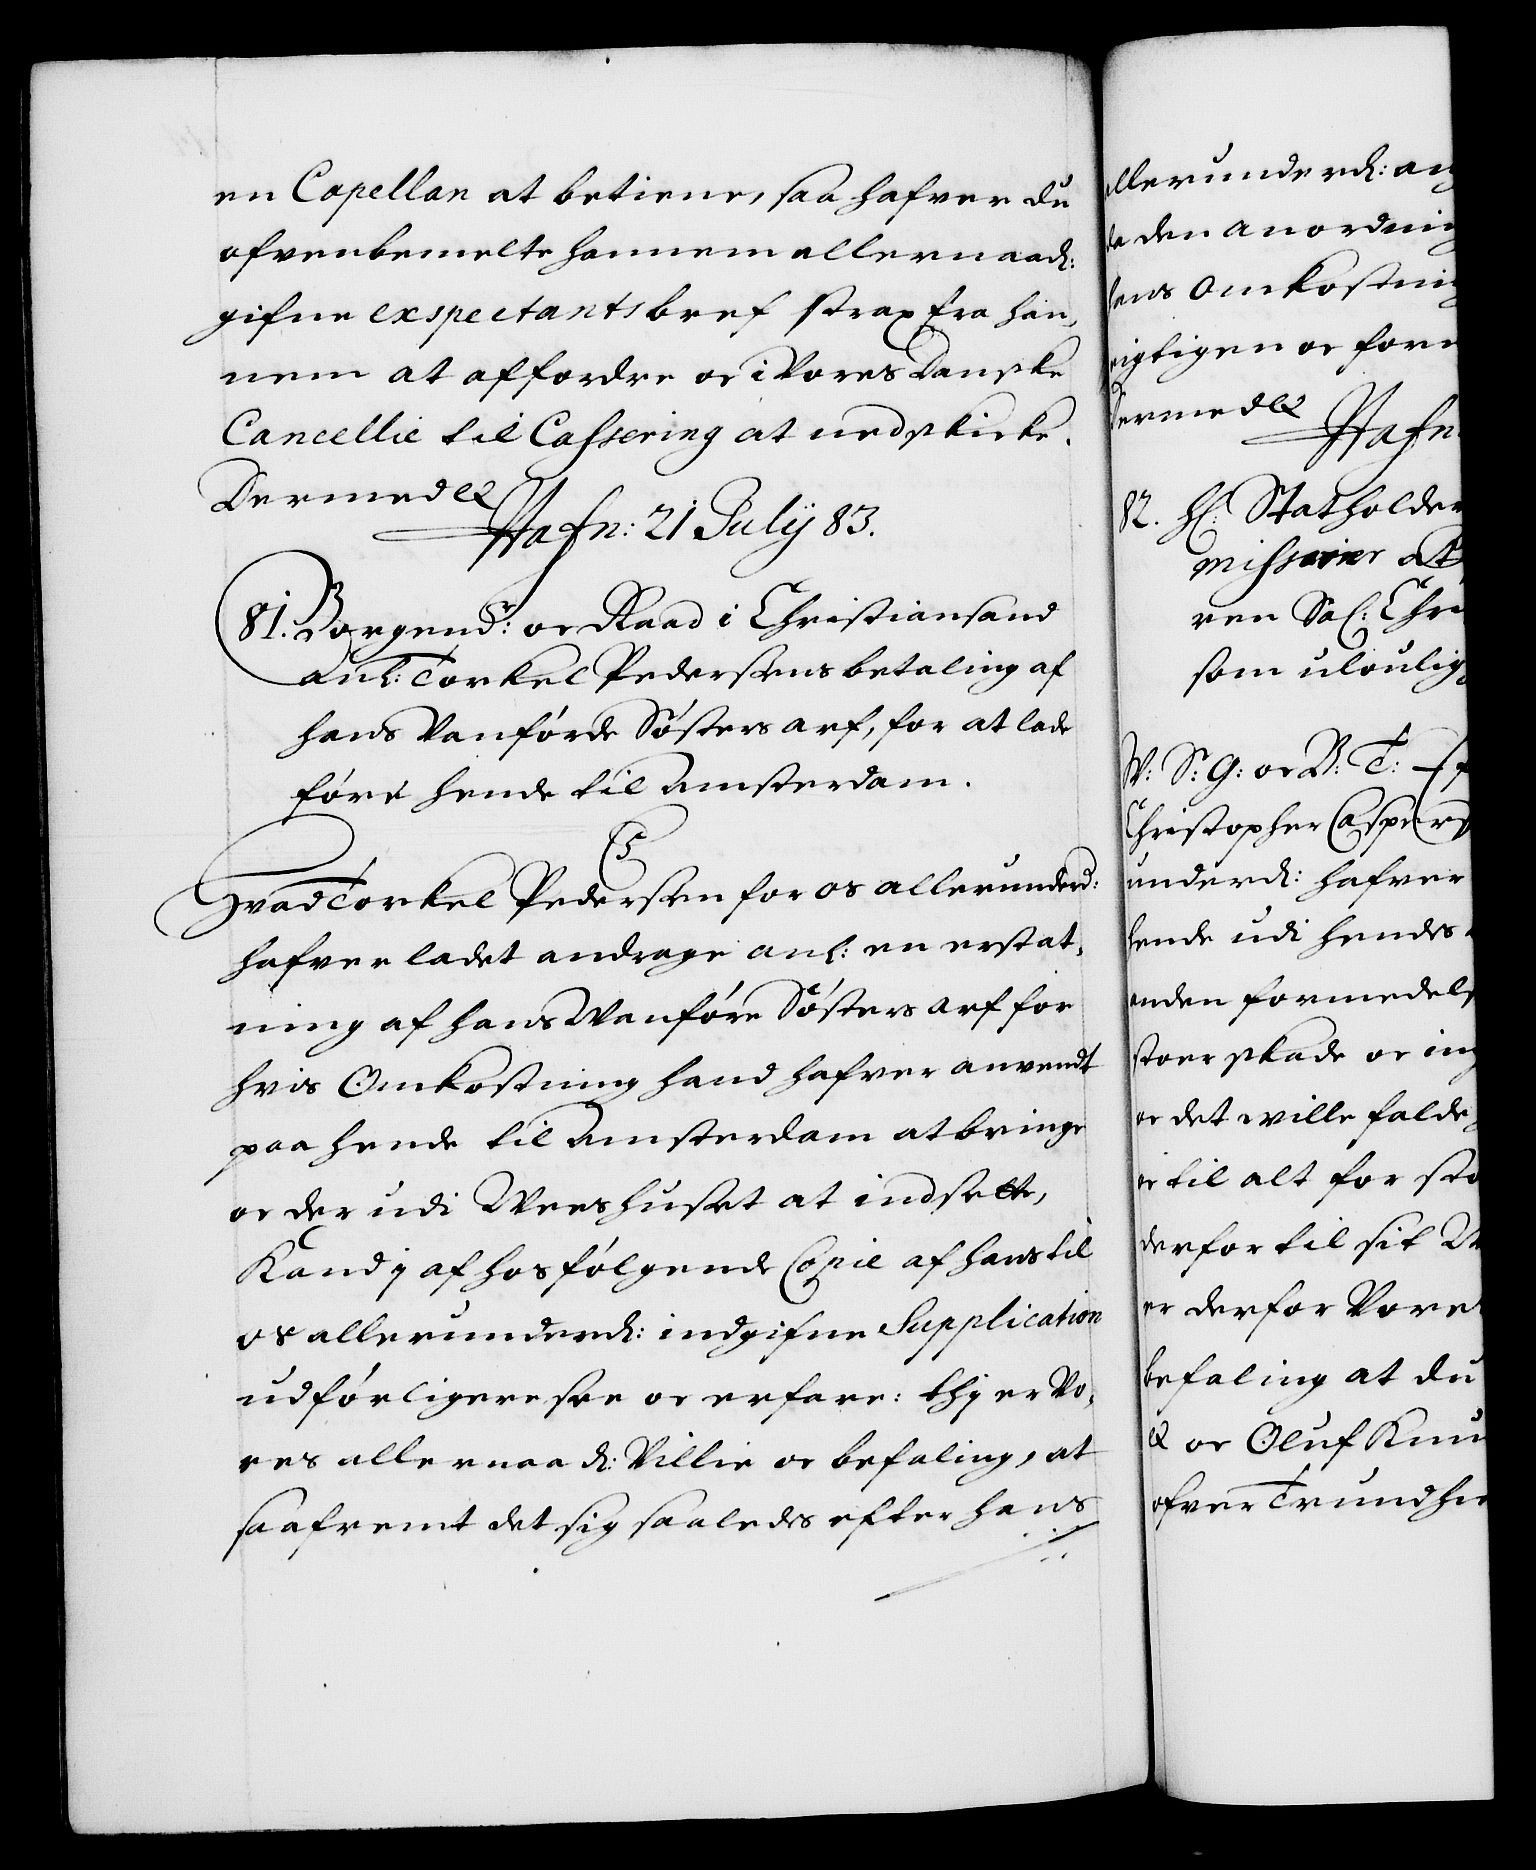 en Capellan at betiene, saa hafver du
ofvenbemelte hannem allernaad:
gifne exspectants bref strax fra han,
nem at affordre oc i Vores Danske
Cancellie til Casseering at nedskicke.
Dermed etc
Hafn: 21 July 83.
81. Borgemr: oc Raad i Christiansand
anl: Torkel Pedersens betaling af
hans Vanförde Sösters arf, for at lade
före hende til Amsterdam.
C5
Hvad Torkel Pedersen for os allerunderd:
hafver ladet andrage anl: en erstat,
ning af hans Wanföre Söster arf for
hvis Omkostning hand hafver anvendt
paa hende til Amsterdam at bringe
oc der udi Weeshuset at indsette,
Kand j af hosfölgende Copie af hans til
os allerunderd: indgifne Supplication
udförligere see oc erfare: thj er Vo,
res allernaad: Villie oc befaling, at
saafremt det sig saaledes efter hans
allerunderd: an
den anordning
hans Omkostning
rigtigen oc for
Dermed etc
Hafn
82. H: Statholder
missarier at
ren Sal: Chr
som ulovlig
W: S: G: oc B: T:
Christopher Caspers
underd: hafver
hende udi hendes
anden formedelst
stoer skade oc ing
oc det wille falde
til alt for sto
derfor til sit
er derfor Vores
befaling at du
etc oc Oluf Knu
ofver Trundhie